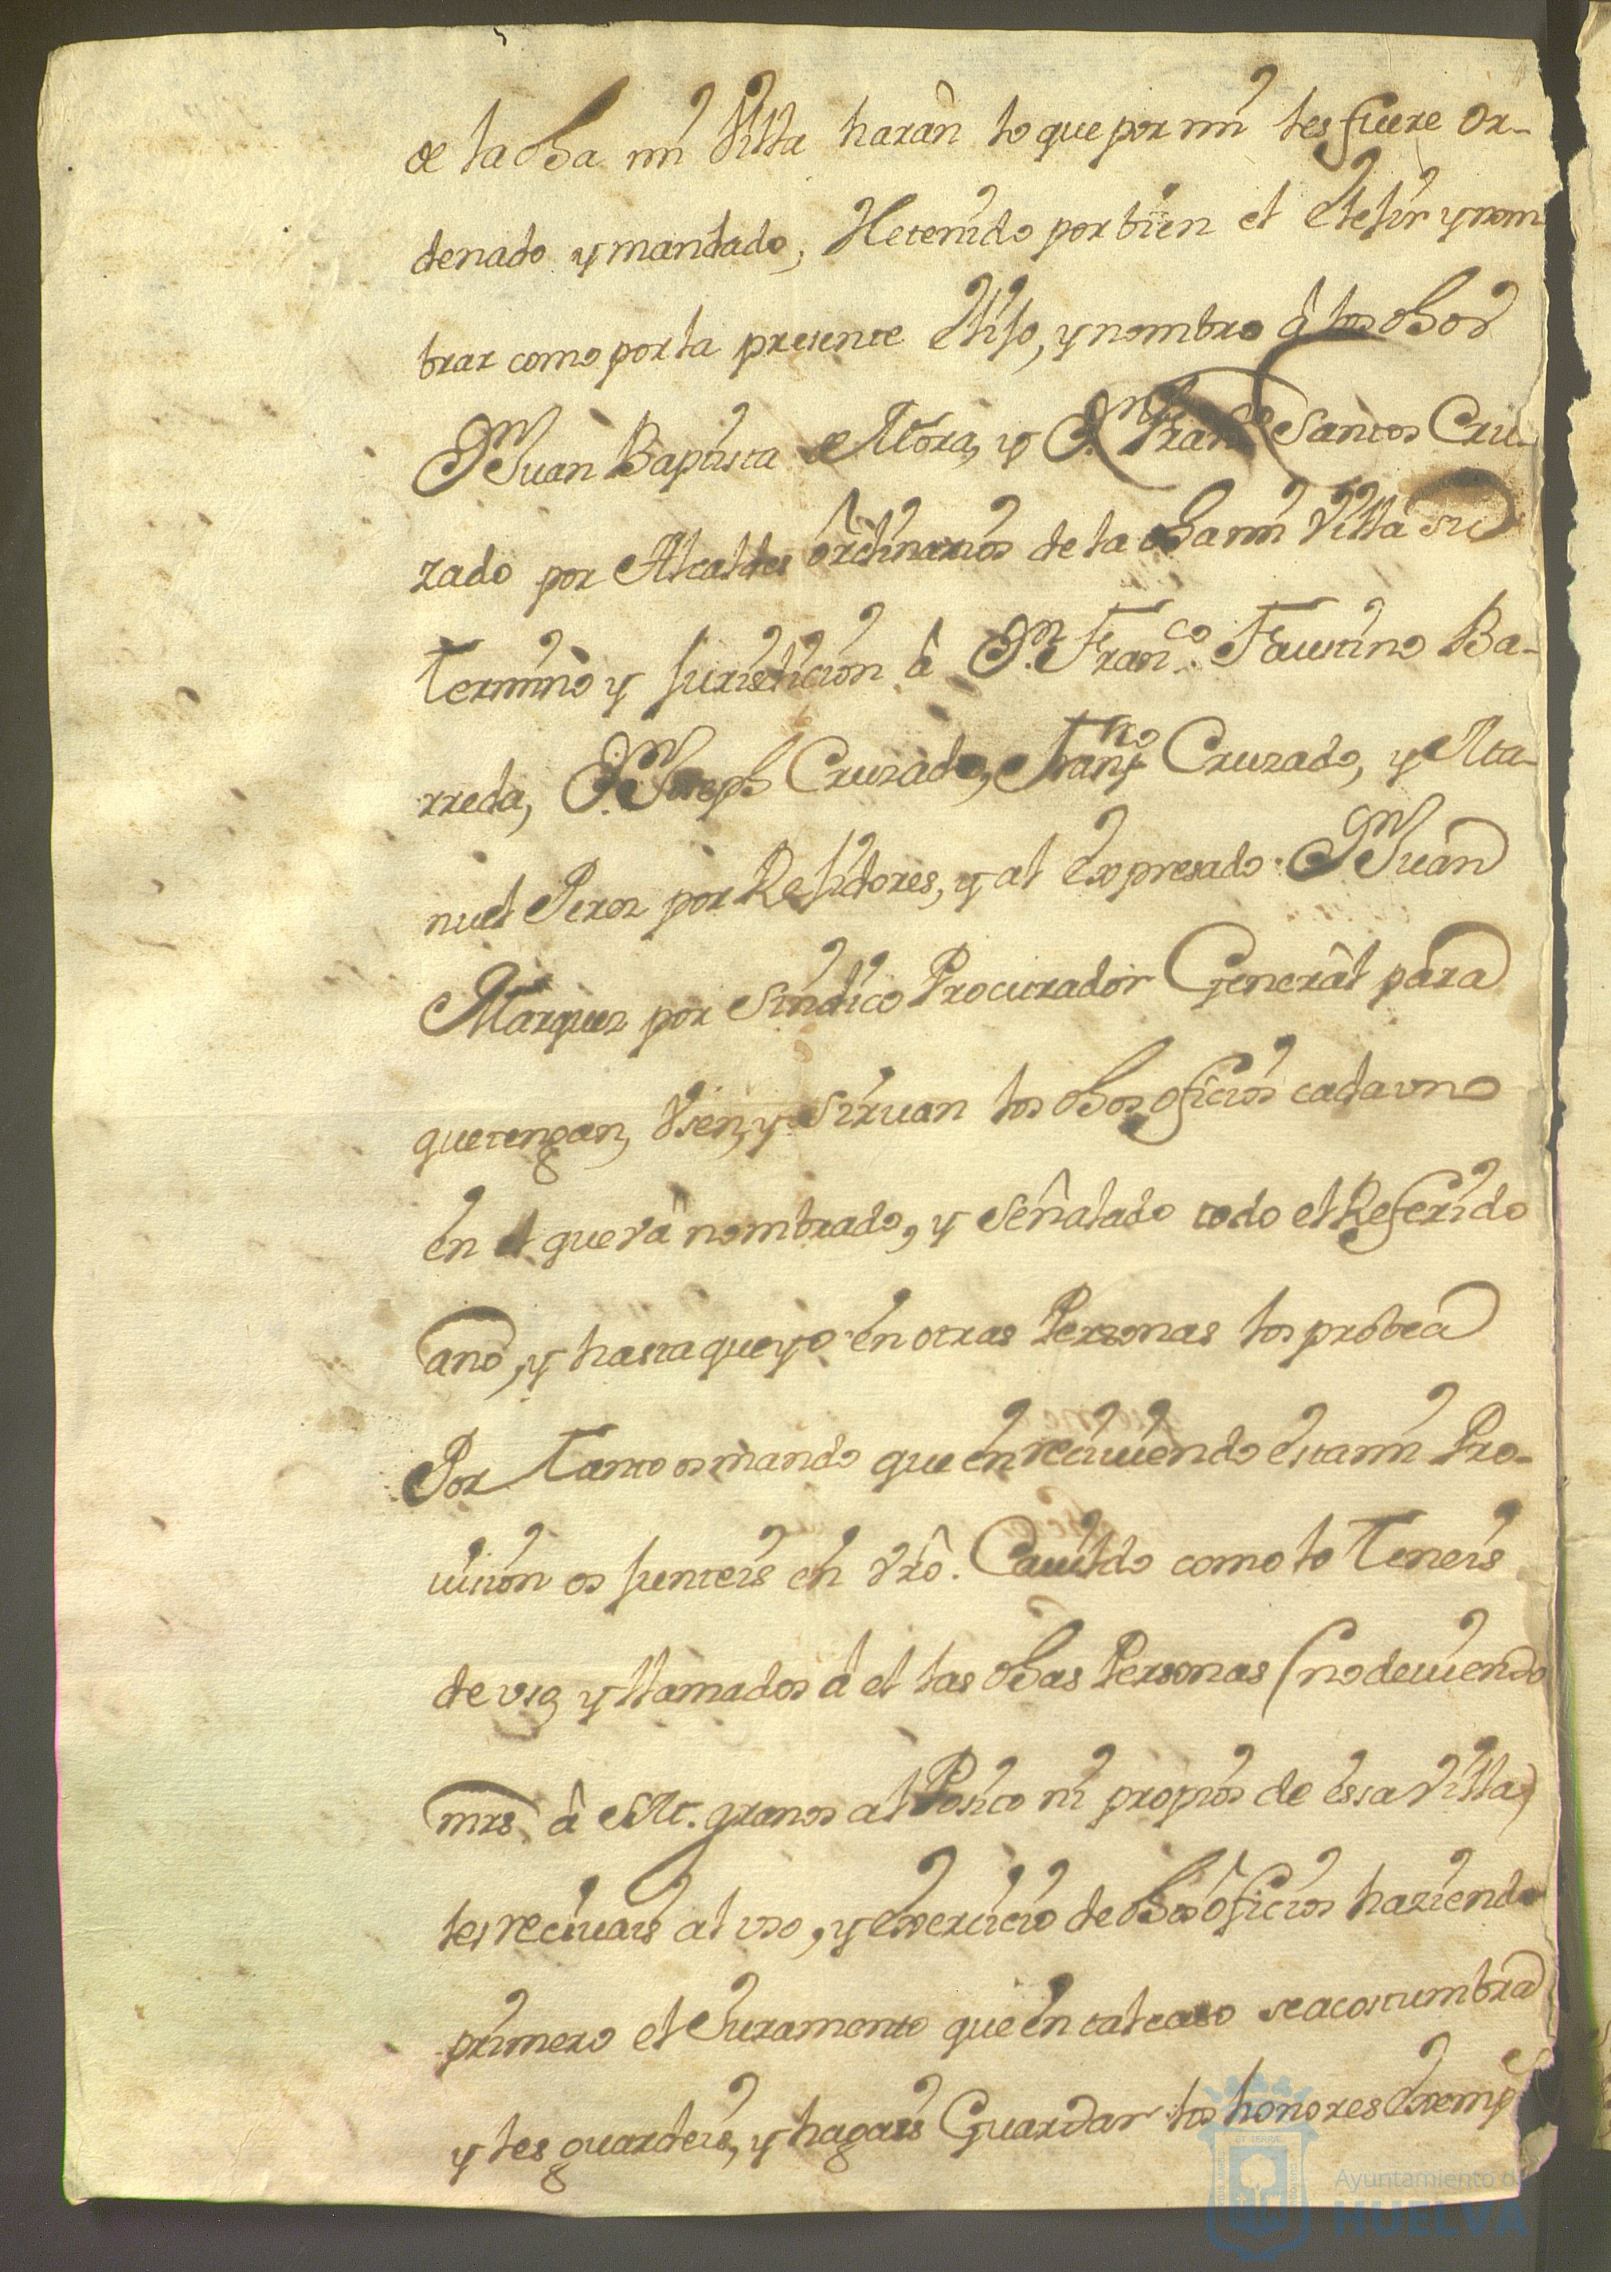 de la dha mi Villa harán lo que por mi les fuere or-
denado y mandado, He tenido por bien el elejir y nom
brar como por la presente elijo, y nombro â los dhos
Dn. Juan Baptista de Mora, y Dn. Franco. Santos Cru-
zado por Alcaldes ôrdinarios de la dha mi Villa su
Termino y jurisdicion â Dn. Franco. Faustino Ba-
rreda, Dn. Joseph Cruzado, Franco. Cruzado, y Ma-
nuel Perez por Rejidores, y al expresado Dn. Juan
Marquez por Sindico Procurador General para
que tengan, Vsen, y Siruan los dhos oficios cada vno
en el que vâ nombrado, y señalado todo el Referido
año, y hasta que yo en otras Personas los probea
Por Tanto os mando que en reciuiendo esta mi Pro-
uision os junteis en vrô. Cauildo como lo Teneis
de vso, y llamados â el las dhas Personas (no deuiendo
mrs. â Mi. granos al Posito ni propios de essa Villa)
les reciuais al vso, y exercicio de dhos ôficios haziendo
primero el Juramento que en tal caso se acostumbra
y les guardeis, y hagais Guardar los honores Exemp
Ayuntamiento de
HUELVA